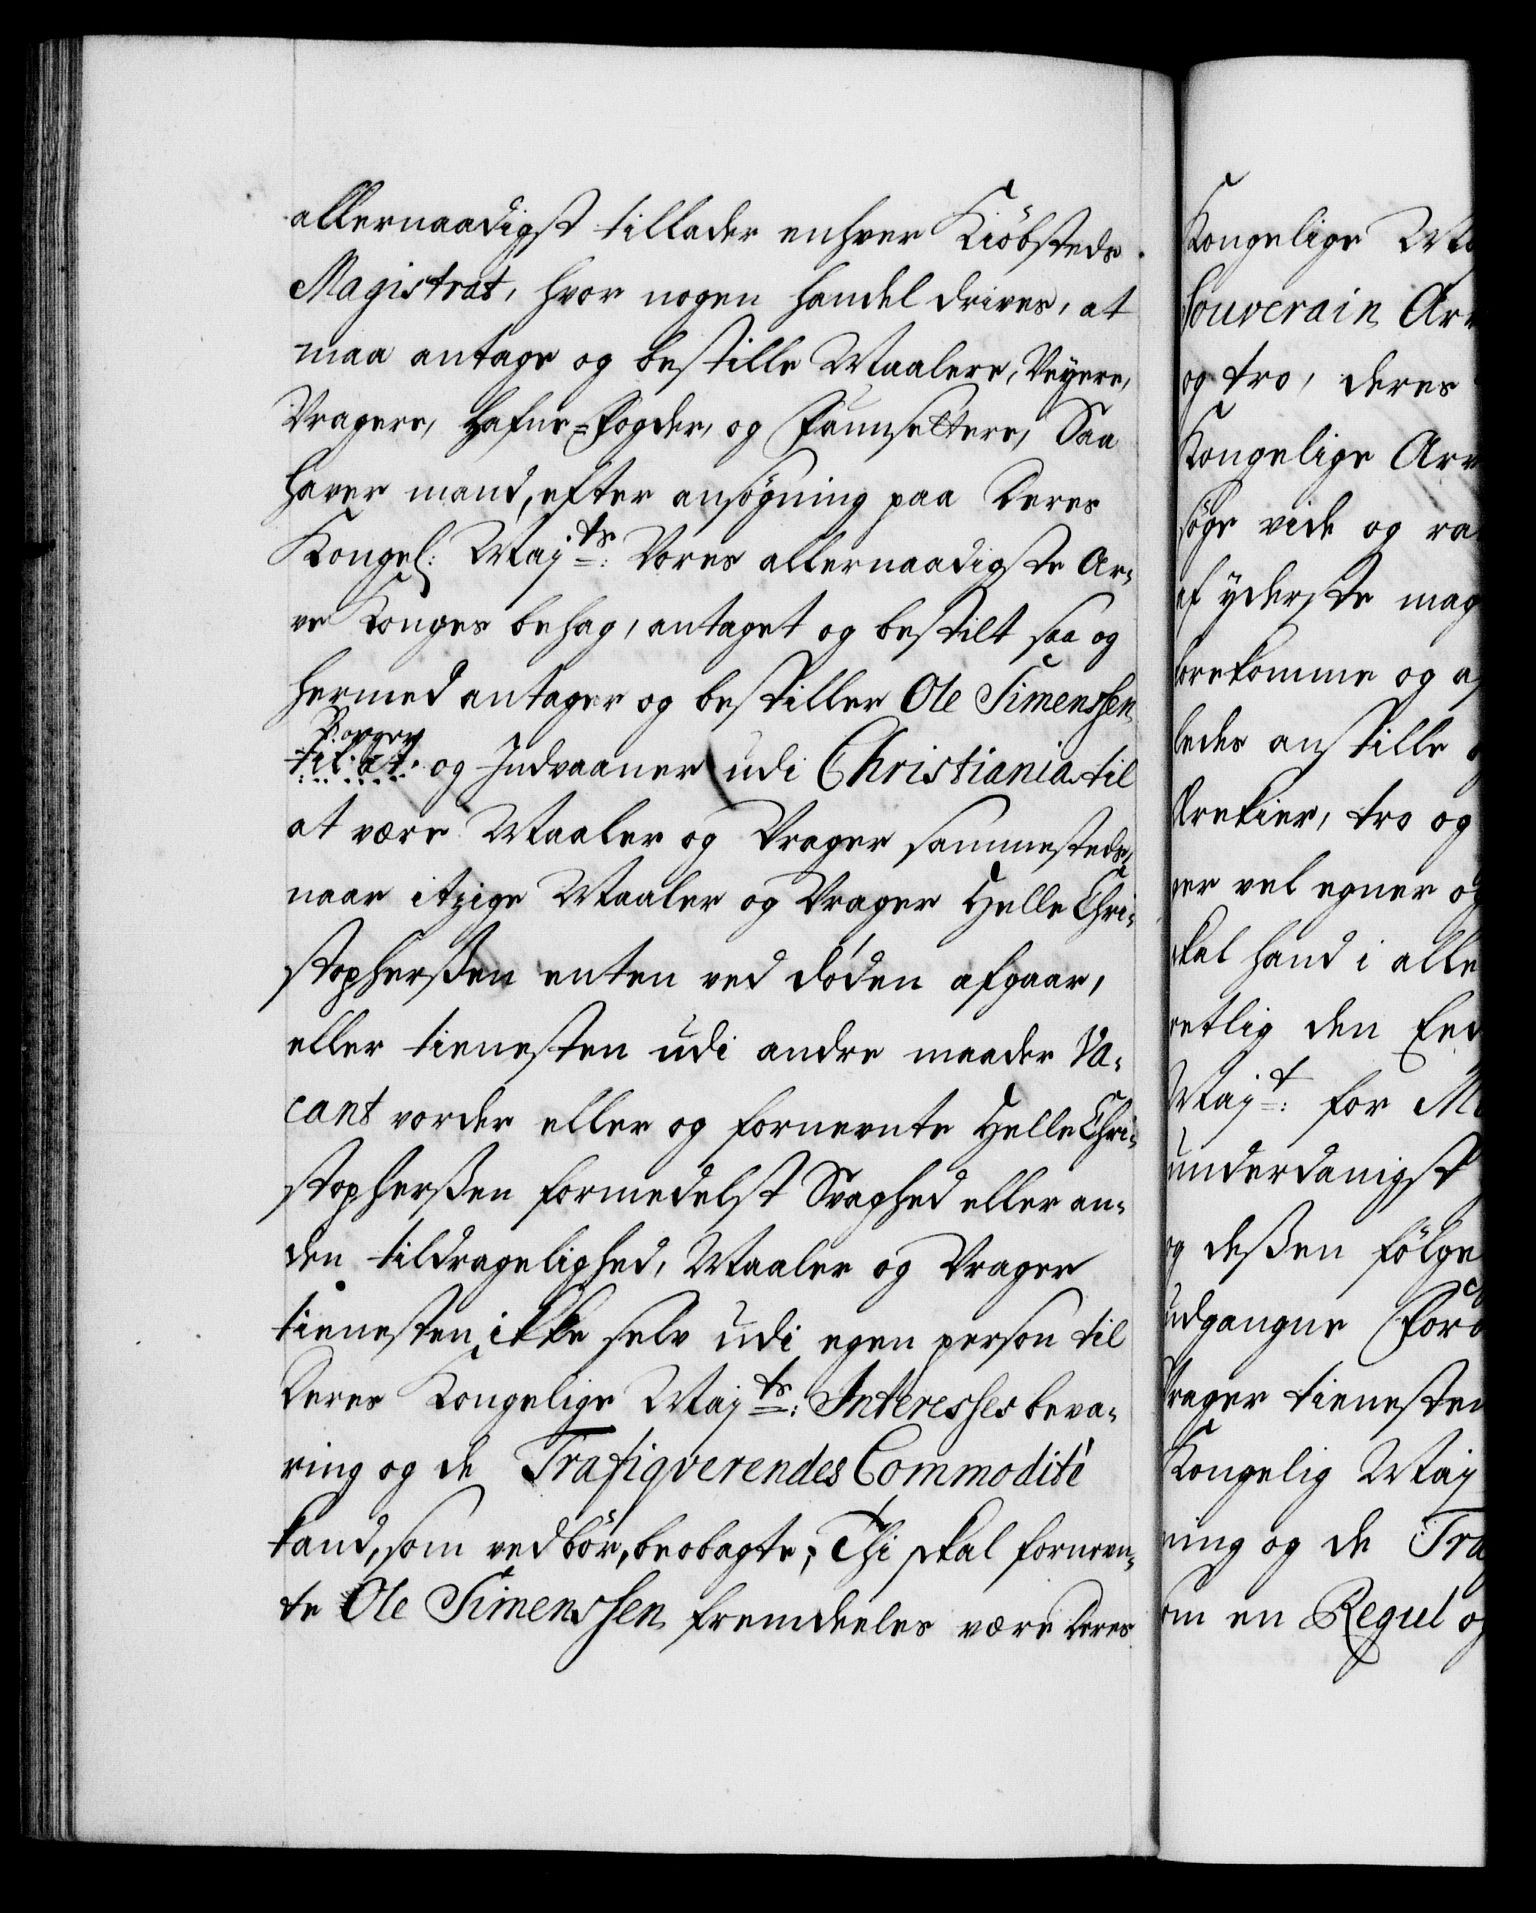 allernaadigst tillader enhver Kiöbsteds
Magistrat, hvor nogen handel drives, at
maa antage og bestille Maalere, Veyere,
Vragere, Hafne=Fogder, og Faunsettere, Saa
haver mand, efter ansögning paa Deres
Kongel: Majts: Vores allernaadigste Ar-
ve Konges behag, antaget og bestilt saa og
hermed antager og bestiller Ole Simenssen
Borger
til at og Indvaaner udi Christiania til
at være Maaler og Vrager sammesteds,
naar itzige Maaler og Vrager Helle Chri-
stopherßen enten ved döden afgaar,
eller tienesten udi andre maader Va-
cant vorder eller og fornevnte Helle Chri-
stopherßen formedelst Svaghed eller an-
den tildragelighed, Maaler og Vrager
tienesten ikke selv udi egen person til
Deres Kongelige Majts: Interesses beva-
ring og de Trafiqverendes Commodité
kand, som vedbör, beobagte; Thi skal fornevn-
te Ole Simenssen fremdeeles være Deres
Kongelige
Souverain Arv
og tro, deres
Kongelige Arv
söge vide og ra
af yderste mag
forekomme og a
ledes anstille
Ærekier, tro og
ner vel egner og
skal hand i alle
retlig den Eed
Majt: for
underdanigst
og deßen fölge
udgangne For
Vrager tienesten
Kongelig Maj
ring og de Tra
om en Regul og